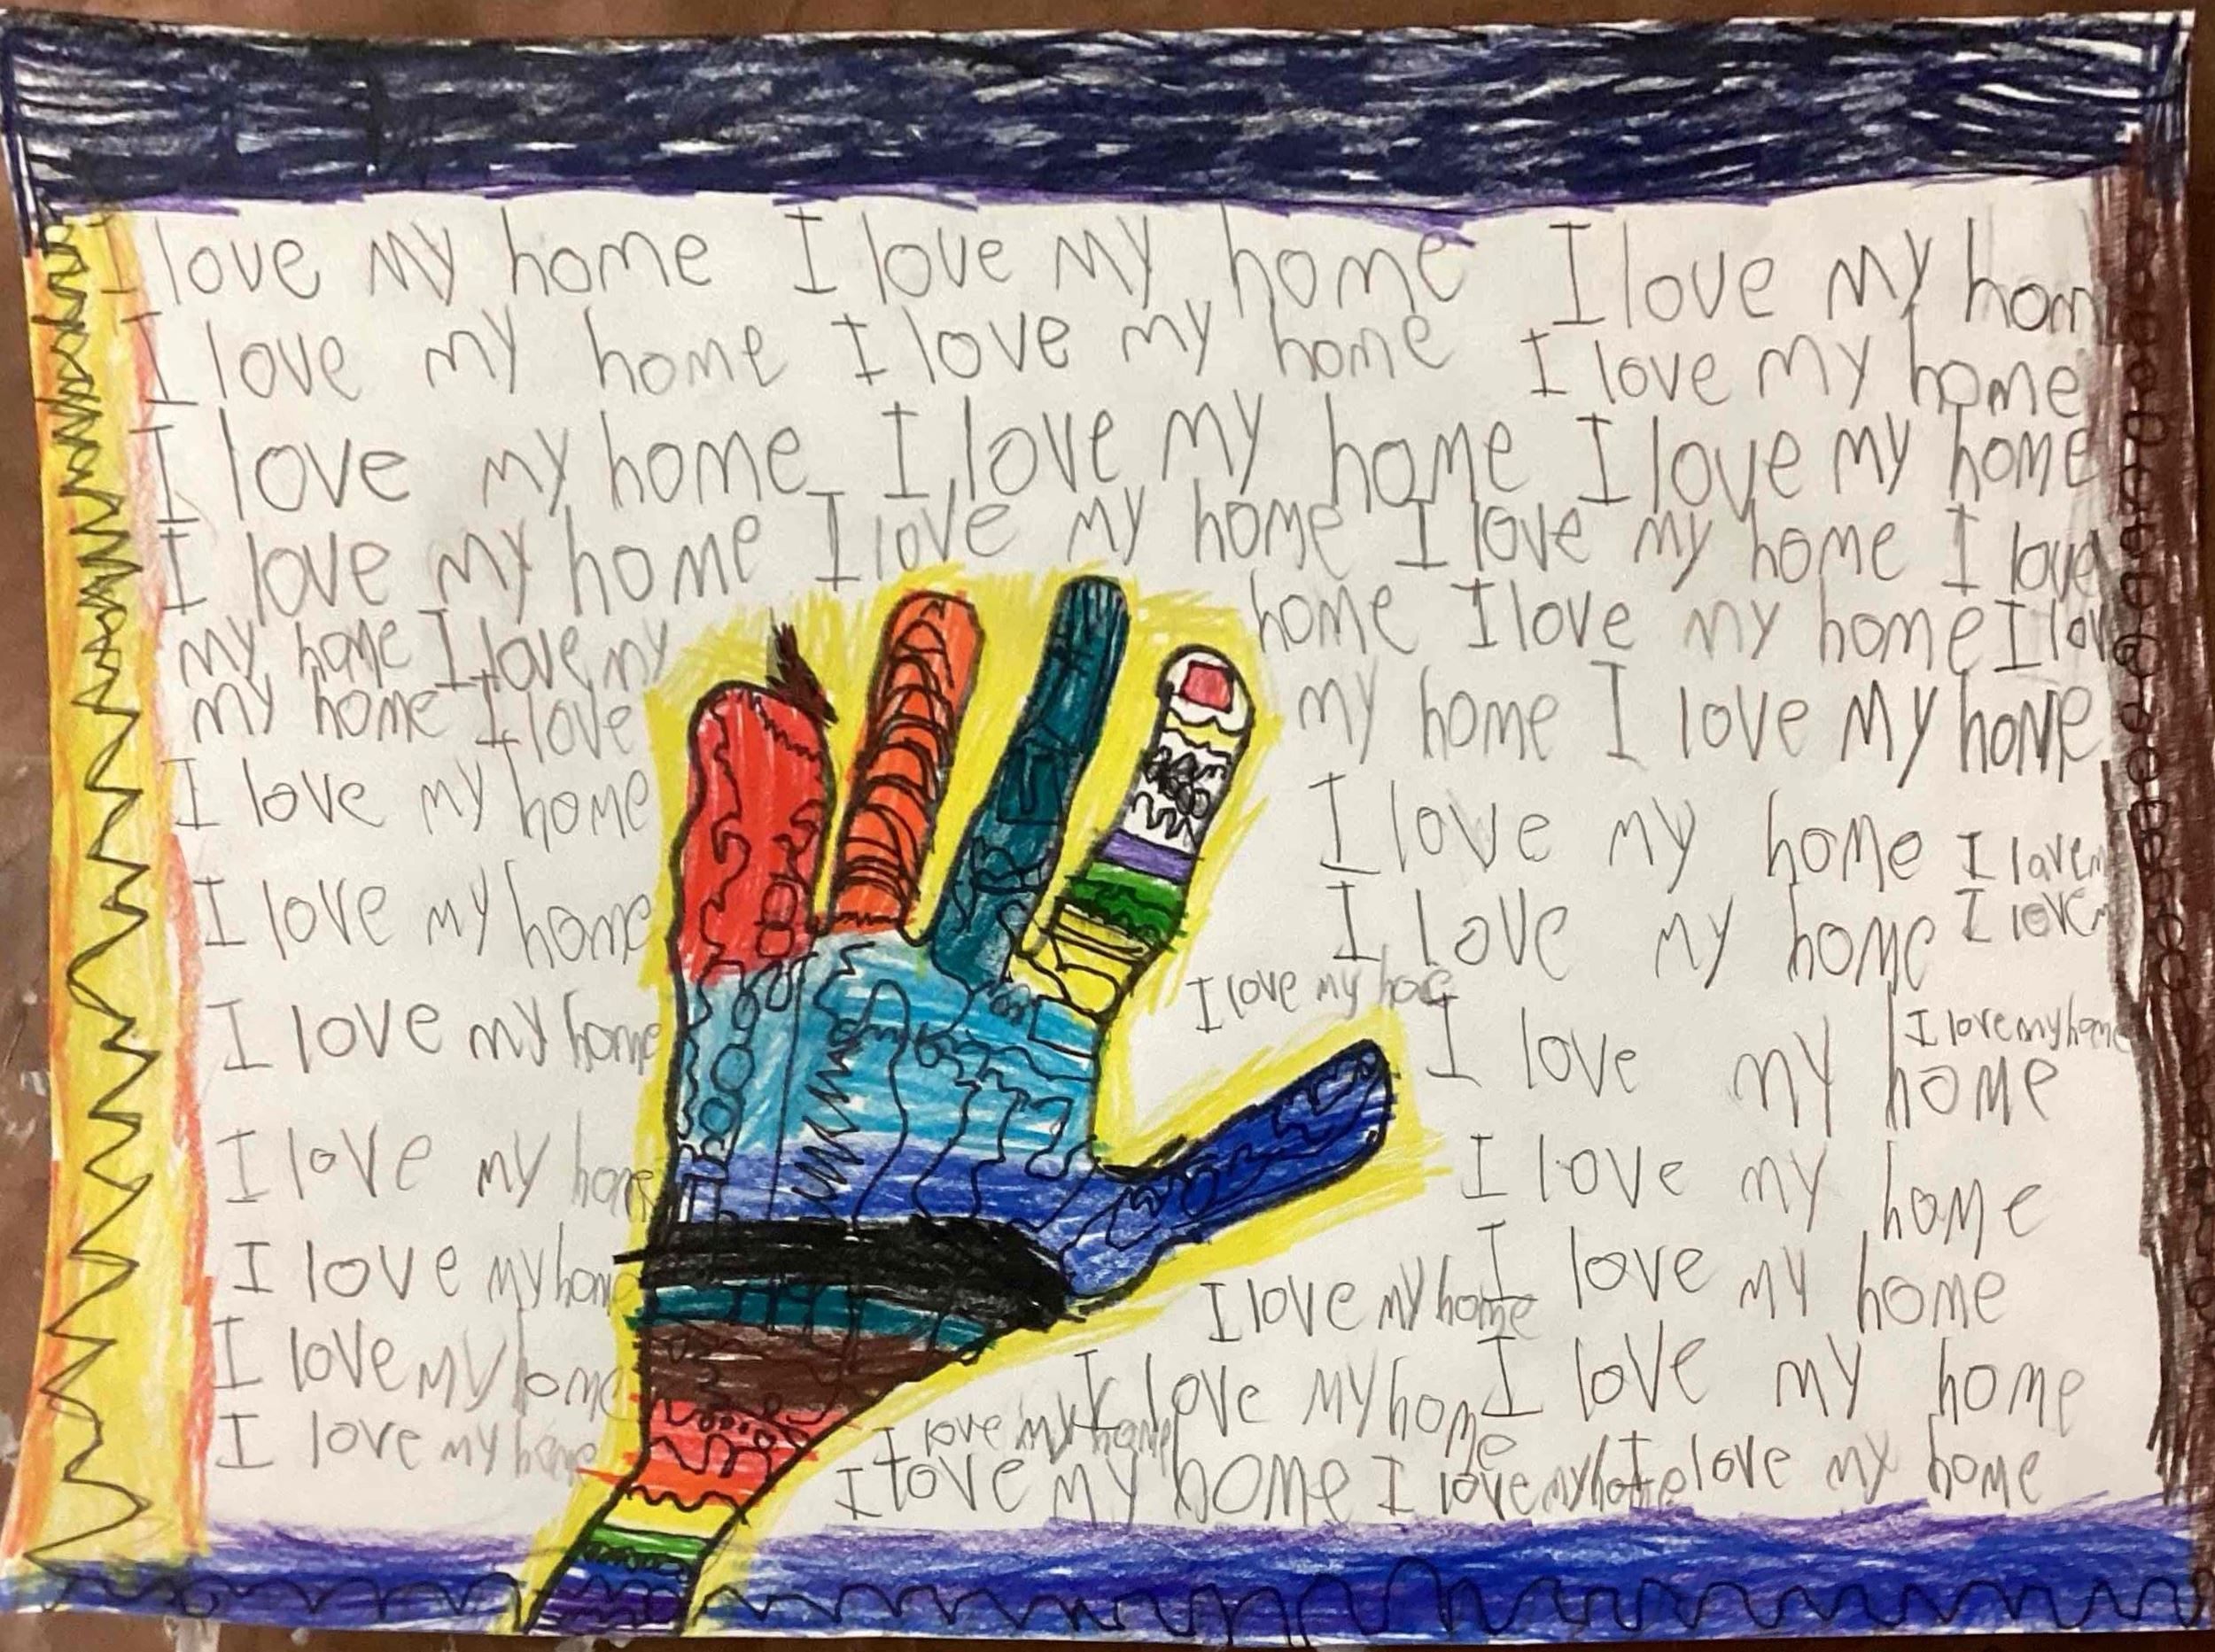 I love my home I love my home I love my hom
I love my home I love my home I love my home
I love my home I love my home I love my home
I love my home I love my home I love my home I love
my home I love my home I love my home I lov
my home I love my home I love my home
I love my home I love my home I love m
I love my home I love my home I love m
I love my hoe
I love my home I love my home I love my home
I love my home I love my home
I love my home I love my home I love my home
I love my home I love my home I love my home
I love my home I love my home
I love my home I love my home I love my home